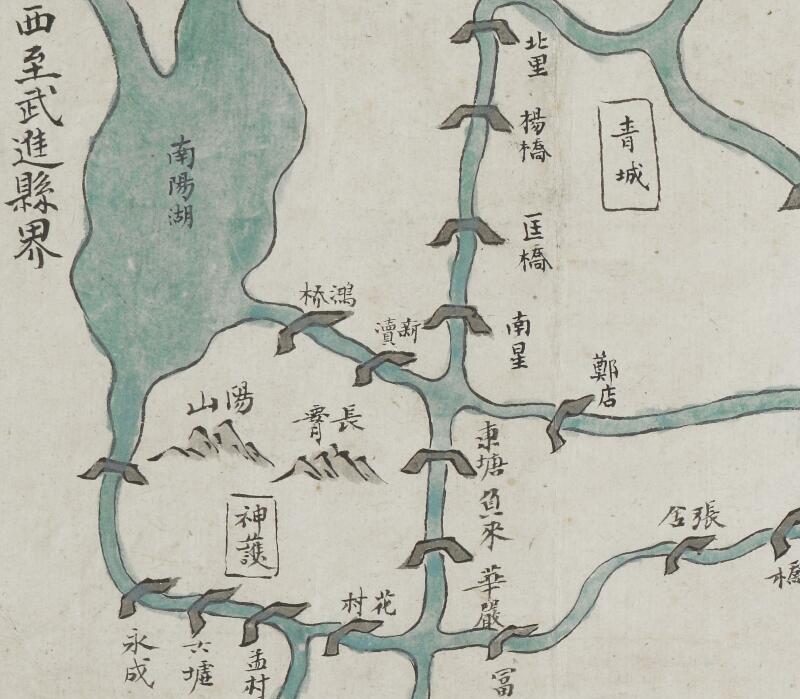 西至武進縣界
南陽湖
北里
楊橋
青城
匡橋
南星
鴻橋
新瀆
鄭店
陽山
長霄
東塘
負來
神護
華嚴
張舍
橋
花村
永成
六墟
孟村
富